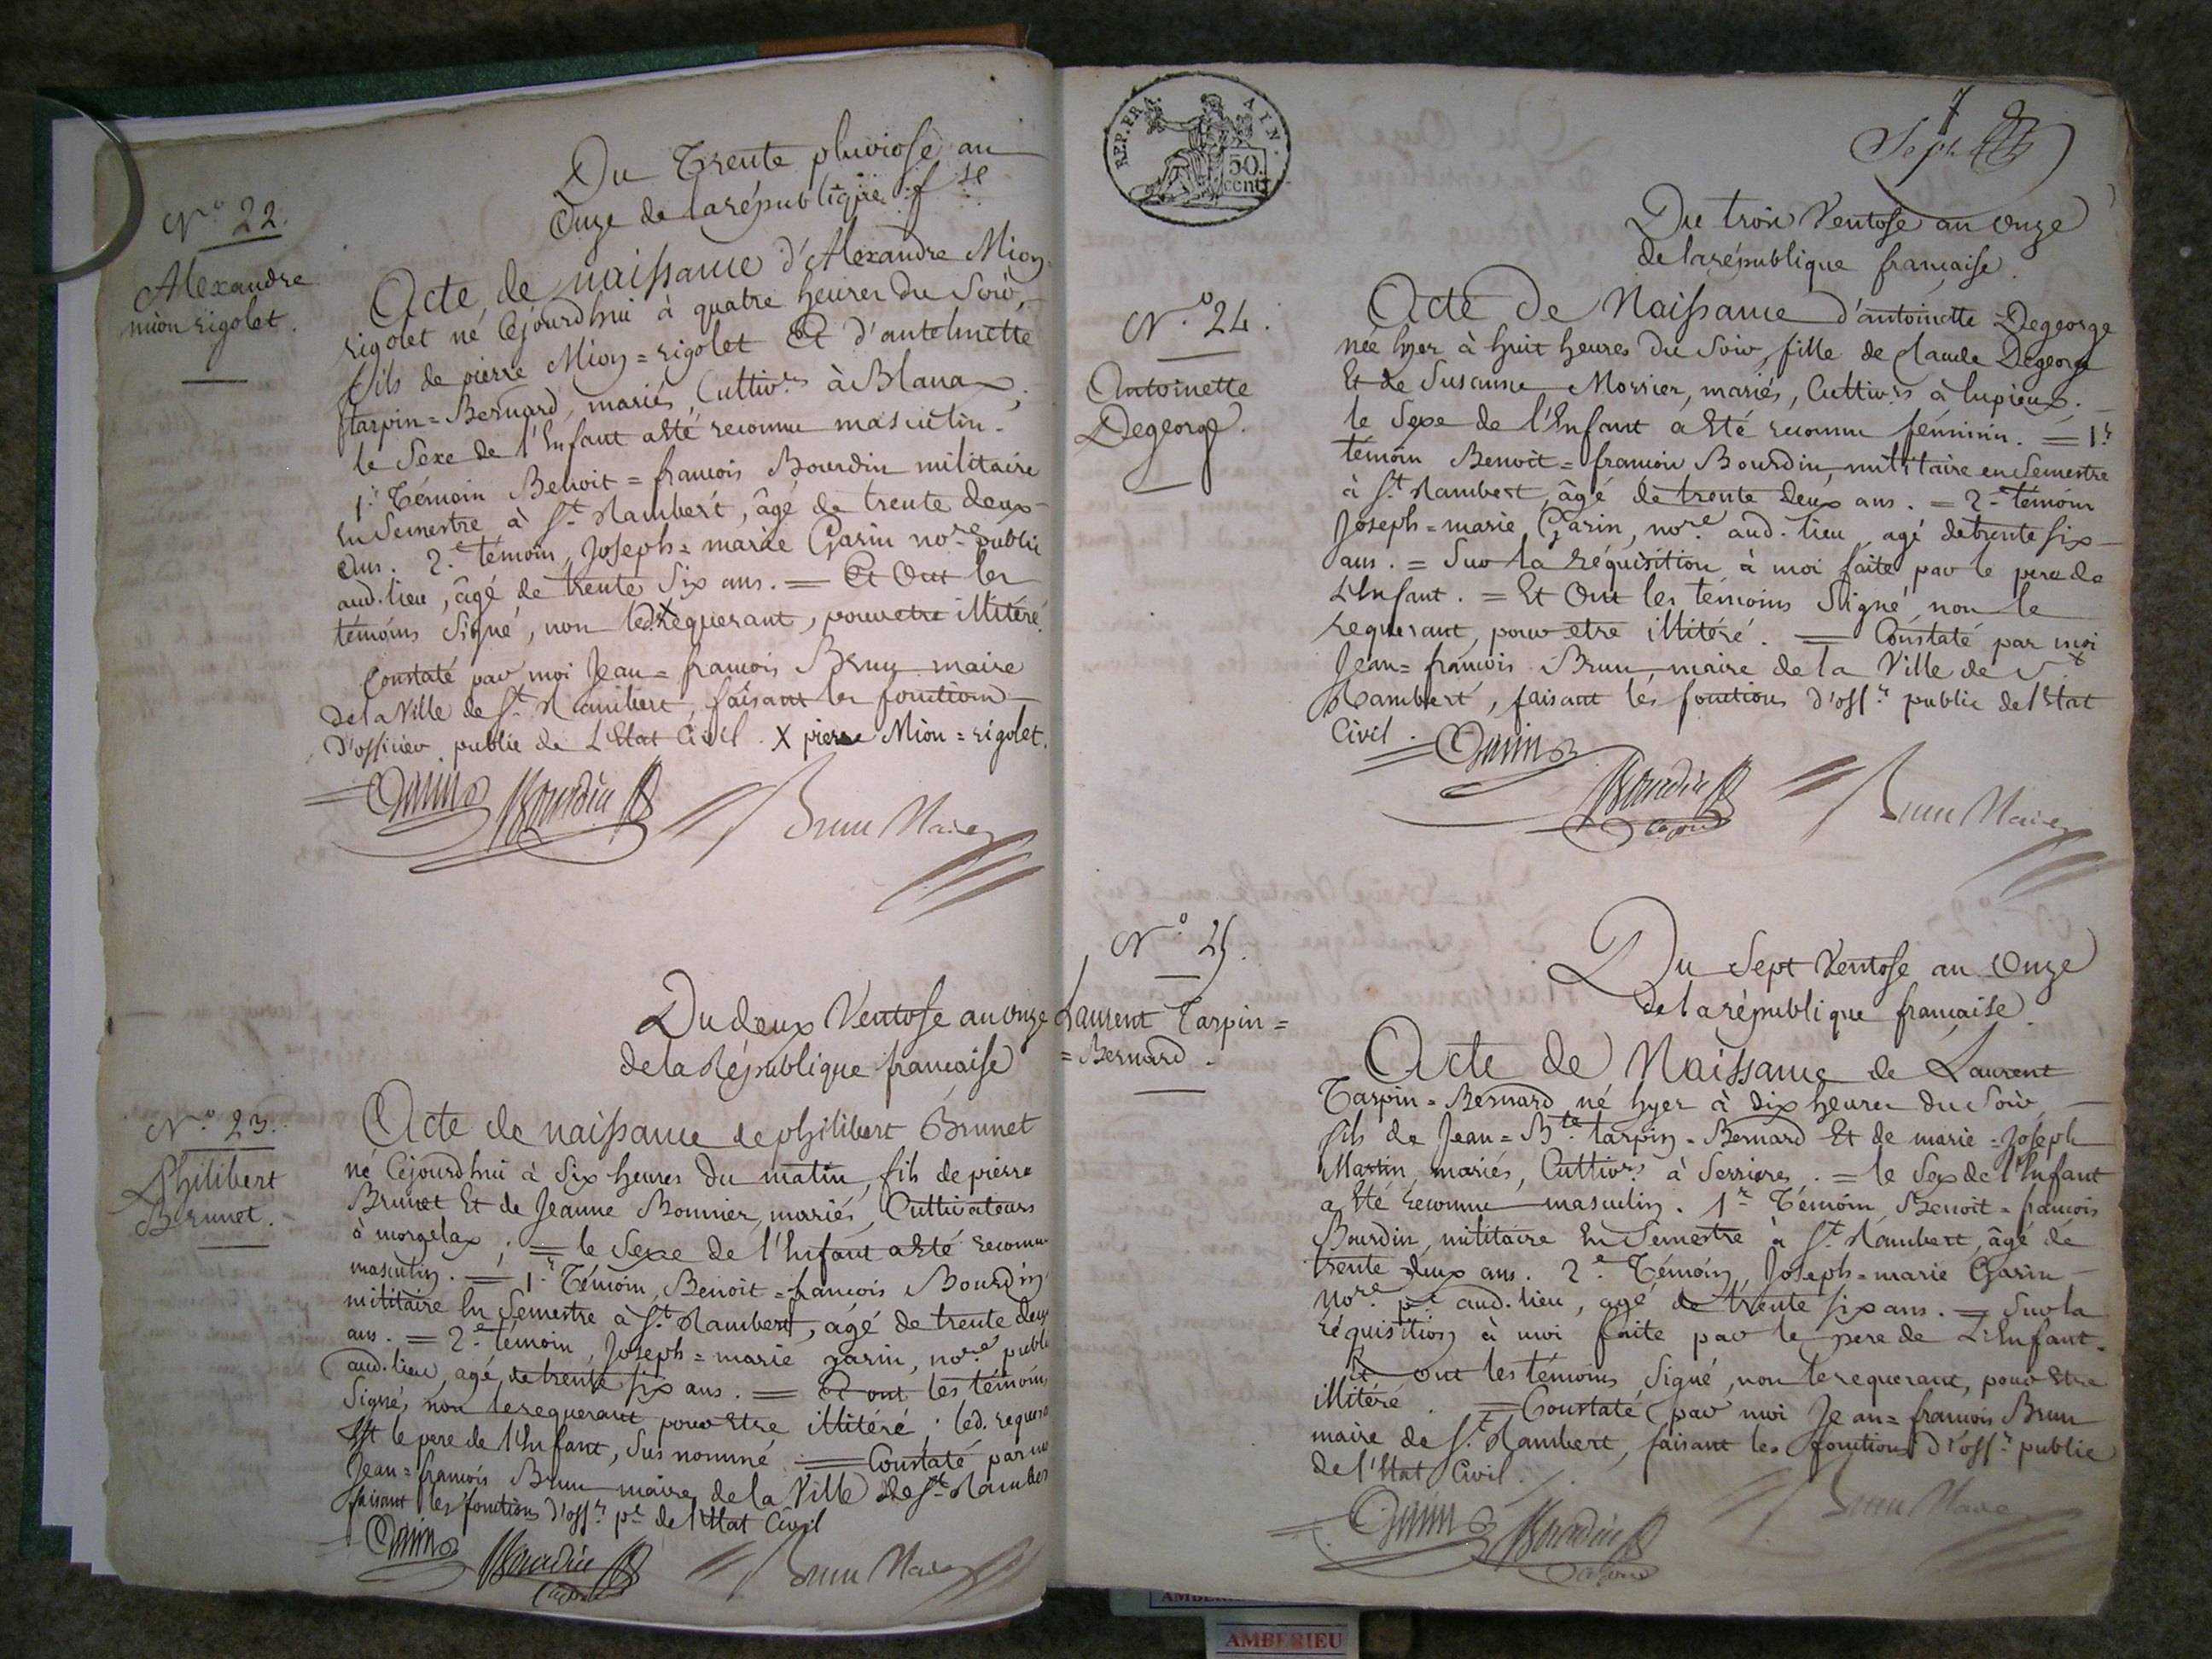 Du Trente pluviose an
Onze de la république f.se
N.º 22.
Alexandre
mion rigolet.
Acte de naissance d'Alexandre Mion=
rigolet né Cejourdhui à quatre heures du Soir,
fils de pierre Mion=rigolet Et d'antelmette
tarpin=Bernard, mariés, Cultiv.rs à Blanax;
le Sexe de l'Enfant a Eté reconnu masculin.
1.r Témoin Benoit=francois Bourdin militaire
En Semestre à S.t Rambert, âgé de trente deux
ans. 2.e témoin, Joseph=marie Garin no.re public
aud. lieu, âgé de trente Six ans. = Et Ont les
témoins Signé, non led. X requerant, pour etre illitéré.
Constaté par moi Jean=francois Brun maire
de la Ville de S.t Rambert, faisant les fonctions
d'officier public de L'Etat Civil. X pierre Mion=rigolet.
Garin Bourdin Brun Maire
Du deux Ventose an onze
de la République francaise
N.º 23.
Philibert
Brunet.
Acte de naissance de philibert Brunet
né Cejourdhui à Six heures du matin, fils de pierre
Brunet Et de Jeanne Bonnier, mariés, Cultivateurs
à morgelax; = le Sexe de l'Enfant a Eté reconnu
masculin. = 1.r Témoin, Benoit=francois Bourdin
militaire En Semestre à S.t Rambert, âgé de trente deux
ans. = 2.e témoin, Joseph=marie garin, no.re public
aud. lieu, agé de trente six ans. = Et ont les témoins
Signé, non le requerant pour Etre illitéré; led. requerant
Est le pere de l'Enfant, Sus nommé. = Constaté par moi
Jean=francois Brun maire de la Ville de S.t Rambert
faisant les fonctions d'off.r p.c de l'Etat Civil
Garin Bourdin Brun Maire
REP. FRA.
50
cent
7
Sept
Du trois Ventose an Onze
de la république francaise.
N.º 24.
Antoinette
Degeorge.
Acte de Naissance d'antoinette Degeorge
née hyer à huit heures du Soir, fille de Claude Degeorge
Et de Susanne Morrier, mariés, Cultiv.rs à lupieux.
le Sexe de l'Enfant a Eté reconnu féminin. = 1.r
témoin Benoit=francois Bourdin, militaire en Semestre
à S.t Rambert, âgé de trente deux ans. = 2.e témoin
Joseph=marie Garin, no.re aud. lieu, agé de trente six
ans. = Sur la réquisition à moi faite par le pere de
L'Enfant. = Et Ont les témoins Signé, non le
requerant, pour etre illitéré. = Constaté par moi
Jean=francois Brun maire de la Ville de S.t
Rambert, faisant les fonctions d'off.r public de l'Etat
Civil.
Garin Bourdin Brun Maire
N.º 25.
Laurent Tarpin=
=Bernard.
Du Sept Ventose an Onze
de la république francaise.
Acte de Naissance de Laurent
Tarpin=Bernard né hyer à dix heures du Soir,
fils de Jean=B.te tarpin=Bernard Et de marie=Joseph
Martin, mariés, Cultiv.rs à Serrieres. = le Sex de l'Enfant
a Eté reconnu masculin. 1.r Témoin, Benoit=francois
Bourdin, militaire En Semestre à S.t Rambert, âgé de
trente deux ans. 2.e Témoin, Joseph=marie Garin
No.re p.c aud. lieu, agé de trente six ans. = Sur la
réquisition à moi faite par le pere de L'Enfant.
Et ont les témoins, Signé, non le requerant, pour Etre
illitéré. = Constaté par moi Jean=francois Brun
maire de S.t Rambert, faisant les fonctions d'off.r public
de l'Etat Civil.
Garin Bourdin Brun Maire
AMBERIEU